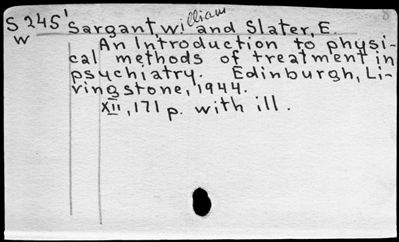 S 245' Sargant, William and Slater, E.
W
An Introduction to physi-
cal methods of treatment in
psychiatry. Edinburgh, Li-
vingstone, 1944.
XII, 171 p. with ill.